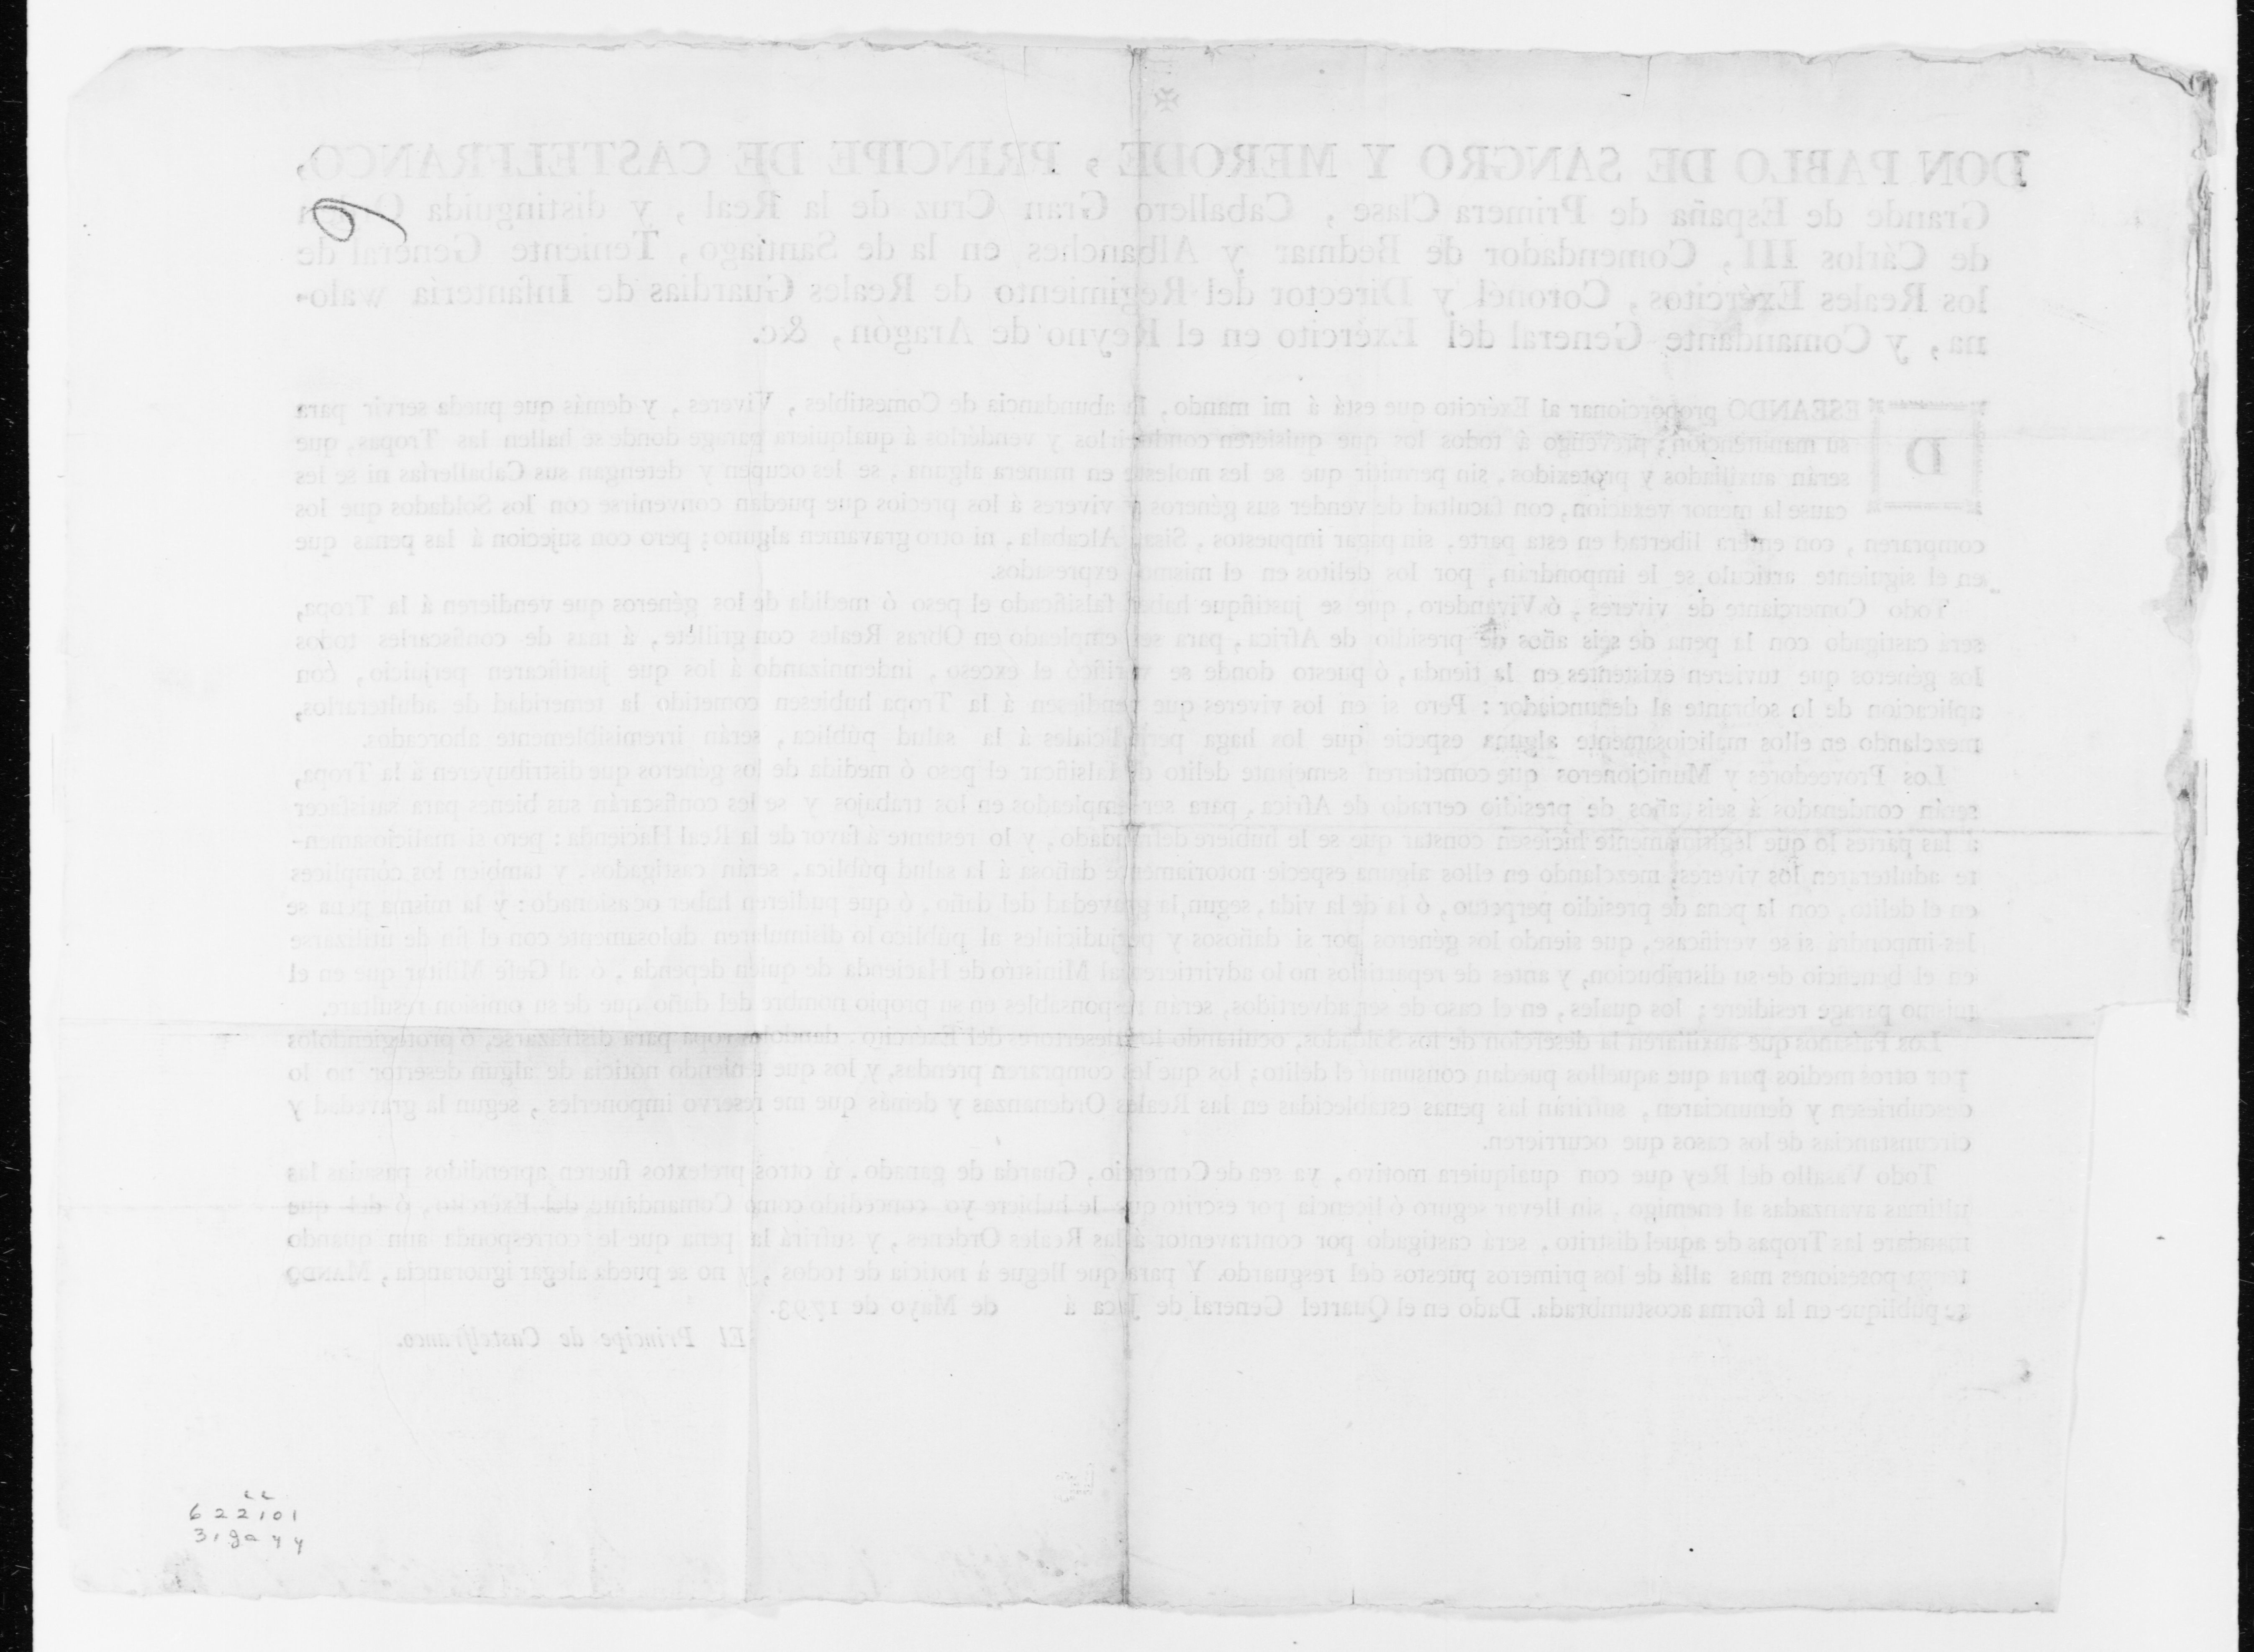 ✠
DON PABLO DE SANGRO Y MERODE, PRINCIPE DE CASTELFRANCO,
Grande de España de Primera Clase, Caballero Gran Cruz de la Real, y distinguida Orden
de Cárlos III, Comendador de Bedmar y Albanches en la de Santiago, Teniente General de
los Reales Exércitos, Coronél y Director del Regimiento de Reales Guardias de Infantería walo-
na, y Comandante General del Exército en el Reyno de Aragón, &c.
6
DESEANDO proporcionar al Exército que está á mi mando, la abundancia de Comestibles, Viveres, y demás que pueda servir para
su manutencion; prevengo á todos los que quisieren conducirlos y vendérlos á qualquiera parage donde se hallen las Tropas, que
serán auxîliados y protexidos, sin permitir que se les moleste en manera alguna, se les ocupen y detengan sus Caballerías ni se les
cause la menor vexacion, con facultad de vender sus géneros y viveres á los precios que puedan convenirse con los Soldados que los
compraren, con entera libertad en esta parte, sin pagar impuestos, Sisa, Alcabala, ni otro gravamen alguno; pero con sujecion á las penas que
en el siguiente artículo se le impondrán, por los delitos en el mismo expresados.
Todo Comerciante de viveres, ó Vivandero, que se justifique haber falsificado el peso ó medida de los géneros que vendieren á la Tropa,
será castigado con la pena de seis años de presidio de Africa, para ser empleado en Obras Reales con grillete, á mas de confiscarles todos
los géneros que tuvieren existentes en la tienda, ó puesto donde se verificó el éxceso, indemnizando á los que justificaren perjuicio, con
aplicacion de lo sobrante al denunciador: Pero si en los viveres que vendiesen á la Tropa hubiesen cometido la temeridad de adulterarlos,
mezclando en ellos maliciosamente alguna especie que los haga perjudiciales á la salud pública, serán irremisiblemente ahorcados.
Los Proveedores y Municioneros que cometieren semejante delito de falsificar el peso ó medida de los géneros que distribuyeren á la Tropa,
serán condenados á seis años de presidio cerrado de Africa, para ser empleados en los trabajos y se les confiscarán sus bienes para satisfacer
á las partes lo que legitimamente hiciesen constar que se le hubiere defraudado, y lo restante á favor de la Real Hacienda: pero si maliciosamen-
te adulteraren los viveres, mezclando en ellos alguna especie notoriamente dañosa á la salud pública, serán castigados, y tambien los cómplices
en el delito, con la pena de presidio perpetuo, ó la de la vida, segun la gravedad del daño, ó que pudieren haber ocasionado: y la misma pena se
les impondrá si se verificase, que siendo los géneros por si dañosos y perjudiciales al público lo disimularen dolosamente con el fin de utilizarse
en el beneficio de su distribucion, y antes de repartirlos no lo advirtieren al Ministro de Hacienda de quien dependa, ó al Gefe Militar que en el
mismo parage residiere; los quales, en el caso de ser advertidos, serán responsables en su propio nombre del daño que de su omision resultare.
Los Paisanos que auxiliaren la desercion de los Soldados, ocultando los desertores del Exército, dandoles ropa para disfrazarse, ó protegiendolos
por otros medios para que aquellos puedan consumar el delito; los que les compraren prendas, y los que teniendo noticia de algun desertor no lo
descubriesen y denunciaren, sufrirán las penas establecidas en las Reales Ordenanzas y demás que me reservo imponerles, segun la gravedad y
circunstancias de los casos que ocurrieren.
Todo Vasallo del Rey que con qualquiera motivo, ya sea de Comercio, Guarda de ganado, ú otros pretextos fueren aprendidos pasadas las
ultimas avanzadas al enemigo, sin llevar seguro ó licencia por escrito que le hubiere yo concedido como Comandante del Exército, ó del que
mandare las Tropas de aquel distrito, será castigado por contraventor á las Reales Ordenes, y sufrirá la pena que le corresponda aun quando
tenga posesiones mas allá de los primeros puestos del resguardo. Y para que llegue à noticia de todos, y no se pueda alegar ignorancia, MANDO
se publique en la forma acostumbrada. Dado en el Quartel General de Jaca á de Mayo de 1793.
El Principe de Castelfranco.
622101